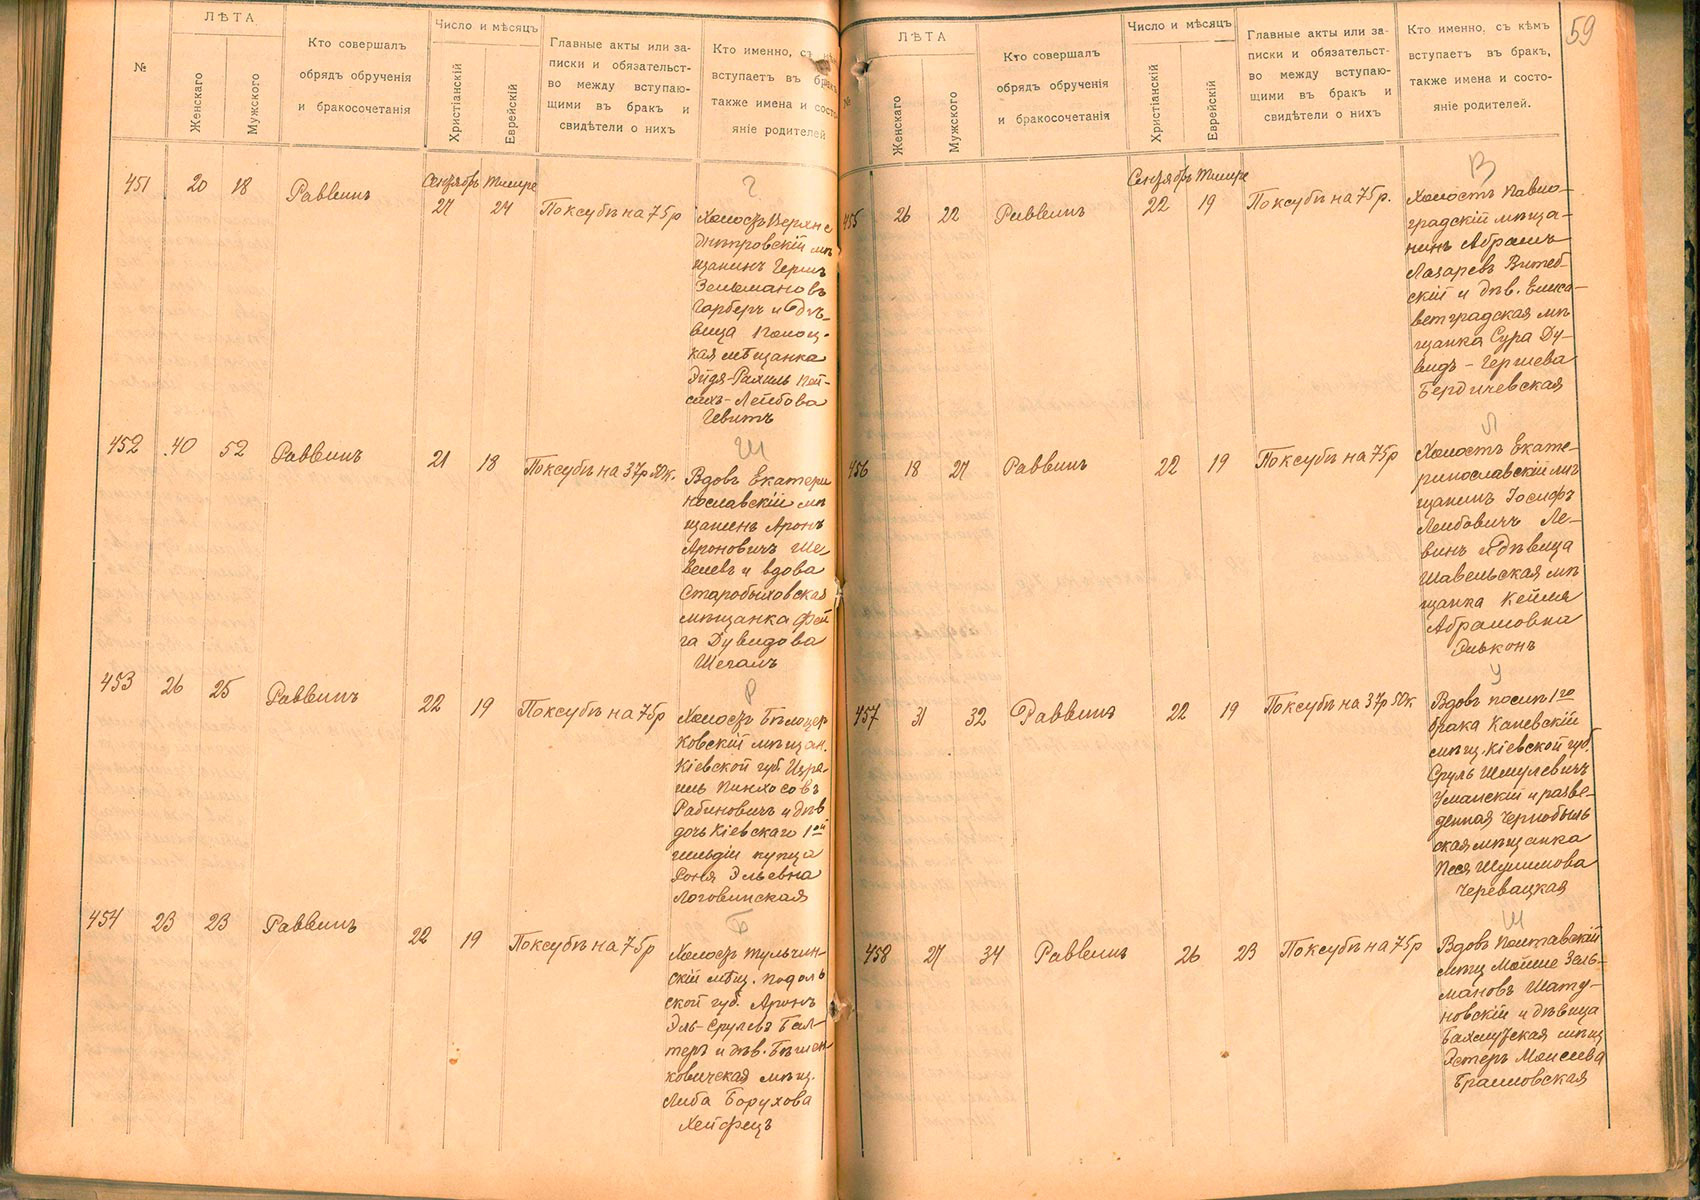 59
№
ЛѢТА
Женскаго
Мужского
Кто совершалъ
обрядъ обрученія
и бракосочетанія
Число и мѣсяцъ
Христіанскій
Еврейскій
Главные акты или за-
писки и обязательст-
во между вступаю-
щими въ бракъ и
свидѣтели о нихъ
Кто именно, съ кѣмъ
вступаетъ въ бракъ,
также имена и состо-
яніе родителей
451 20 18 Раввинъ
Сентябрь Тишре
21 24 Поксубѣ на 75р
Г
Холостъ Верхне
днѣпровскій мѣ
щанинъ Гершъ
Зельмановъ
Гарберъ и дѣ-
вица Полоц-
кая мѣщанка
Эйдя-Рахиль Пей-
сахъ-Лейбова
Гевитъ
452 40 52 Раввинъ 21 18 Поксубѣ на 37р 50к.
Ш
Вдовъ Екатери
нославскій мѣ
щанинъ Аронъ
Ароновичъ Ше
велевъ и вдова
Старобыховская
мѣщанка Фей
га Дувидова
Шегалъ
453 26 25 Раввинъ 22 19 Поксубѣ на 75р
Р
Холостъ Бѣлоцер
ковскій мѣщан.
Кіевской губ. Изра-
иль Пинхосовъ
Рабиновичъ и дѣв
дочь Кіевскаго 1ой
гильдіи купца
Соня Эльевна
Логовинская
454 23 23 Раввинъ 22 19 Поксубѣ на 75р
Б
Холостъ Тульчин-
скій мѣщ. Подоль
ской губ. Аронъ
Эль-Срулевъ Бал-
теръ и дѣв. Бѣшен
ковичская мѣщ.
Либа Борухова
Хейфецъ
№
ЛѢТА
Женскаго
Мужского
Кто совершалъ
обрядъ обрученія
и бракосочетанія
Число и мѣсяцъ
Христіанскій
Еврейскій
Главные акты или за-
писки и обязательст-
во между вступаю-
щими въ бракъ и
свидѣтели о нихъ
Кто именно, съ кѣмъ
вступаетъ въ бракъ,
также имена и состо-
яніе родителей.
455 26 22 Раввинъ
Сентябрь Тишре
22 19 Поксубѣ на 75р.
В
Холостъ Павло-
градскій мѣща-
нинъ Абрамъ
Лазаревъ Витеб-
скій и дѣв. Елиса-
ветградская мѣ
щанка Сура Ду-
видъ-Гершева
Бердичевская
456 18 27 Раввинъ 22 19 Поксубѣ на 75р
Л
Холостъ Екате-
ринославскій мѣ
щанинъ Іосифъ
Лейбовичъ Ле-
винъ и дѣвица
Шавельская мѣ
щанка Кейла
Абрамовна
Элконъ
457 31 32 Раввинъ 22 19 Поксубѣ на 37р 50к
У
Вдовъ послѣ 1го
брака Каневскій
мѣщ. Кіевской губ.
Сруль Шмулевичъ
Уманскій и разве-
денная Чернобыль
ская мѣщанка
Песя Шулимова
Черевацкая
458 27 34 Раввинъ 26 23 Поксубѣ на 75р
Ш
Вдовъ Полтавскій
мѣщ Мойше Зель-
мановъ Шату-
новскій и дѣвица
Бахмутская мѣщ
Эстеръ Моисеева
Браиловская